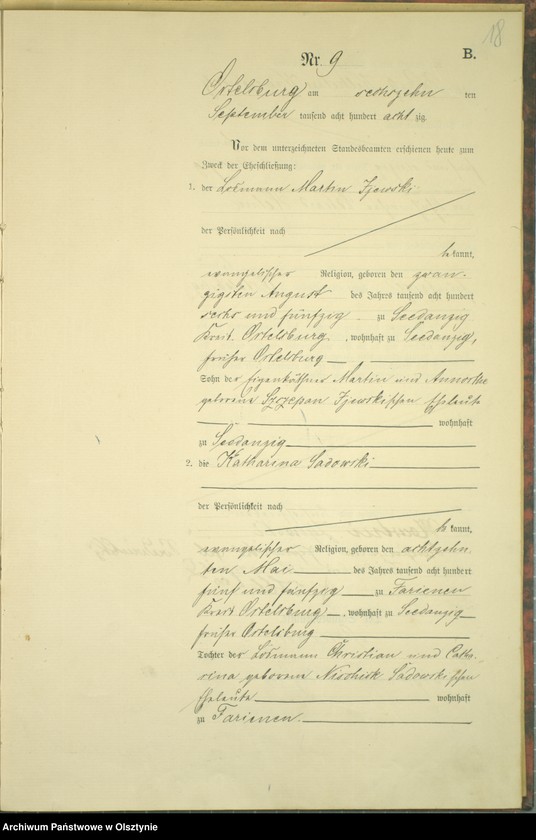 18
B.
Nr 9
Ortelsburg am sechszehn ten
September tausend acht hundert acht zig.
Vor dem unterzeichneten Standesbeamten erschienen heute zum
Zweck der Eheschließung:
1. der Losmann Martin Jjewski
der Persönlichkeit nach
be kannt,
evangelischer Religion, geboren den zwan-
zigsten August des Jahres tausend acht hundert
sechs und fünfzig zu Seedanzig
Kreis Ortelsburg, wohnhaft zu Seedanzig,
früher Ortelsburg
Sohn der Eigenkäthner Martin und Annortha
geborene Szczepan Jjewskischen Eheleute
wohnhaft
zu Seedanzig
2. die Katharina Sadowski
der Persönlichkeit nach
be kannt,
evangelischer Religion, geboren den achtzehn
ten Mai des Jahres tausend acht hundert
fünf und fünfzig zu Farienen
Kreis Ortelsburg, wohnhaft zu Seedanzig
früher Ortelsburg
Tochter der Losmann Christian und Catha-
rina geborene Sadowskischen
Eheleute wohnhaft
zu Farienen.
Archiwum Państwowe w Olsztynie